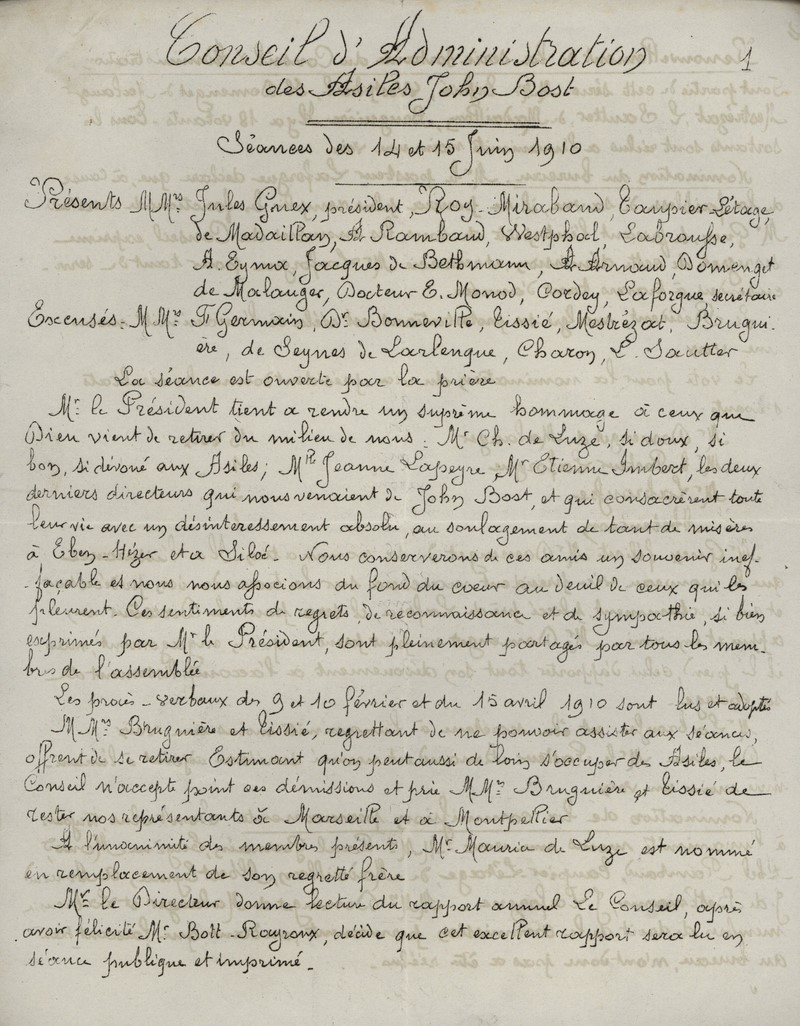 Conseil d'Administration
1
des Asiles John Bost
Séances des 14 et 15 Juin 1910
Présents MMrs Jules Guex, président, Roy-Mirabaud, Taupier Létage,
de Madaillan, A Rambaud, Westphal, Labrousse,
A. Eyma, Jacques de Bethmann, A Arnaud, Domenget
de Malauger, Docteur E. Monod, Cordey, Laforgue, secrétaire
Excusés. MMrs F Germain, Dr Bonneville, Tissié, Mestrézat, Brugui-
ère, de Seynes de Larlenque, Charon, L. Sautter
La séance est ouverte par la prière
Mr le Président tient a rendre un suprême hommage à ceux que
Dieu vient de retirer du milieu de nous. Mr Ch. de Luze, si doux, si
bon, si dévoué aux Asiles; Mlle Jeanne Lapeyre, Mr Etienne Imbert, les deux
derniers directeurs qui nous venaient de John Bost, et qui consacrèrent toute
leur vie avec un désintéressement absolu, au soulagement de tant de misères
à Eben-Hézer et a Siloé. Nous conserverons de ces amis un souvenir inef-
façable et nous nous associons du fond du coeur au deuil de ceux qui les
pleurent. Ces sentiments de regrets, de reconnaissance et de sympathie, si bien
exprimés par Mr le Président, sont pleinement partagés par tous les mem-
bres de l'assemblée
Les procès-verbaux des 9 et 10 février et du 15 avril 1910 sont lus et adoptés
MMrs Bruguière et Tissié, regrettant de ne pouvoir assister aux séances,
offrent de se retirer Estimant qu'on peut aussi de loin s'occuper des Asiles, le
Conseil n'accepte point ces démissions et prie MMrs Bruguière et Tissié de
rester nos représentants à Marseille et à Montpellier
A l'unanimité des membres présents, Mr Maurice de Luze est nommé
en remplacement de son regretté frère
Mr le Directeur donne lecture du rapport annuel Le Conseil, après
avoir félicité Mr Bott-Rouyroux, décide que cet excellent rapport sera lu en
séance publique et imprimé.